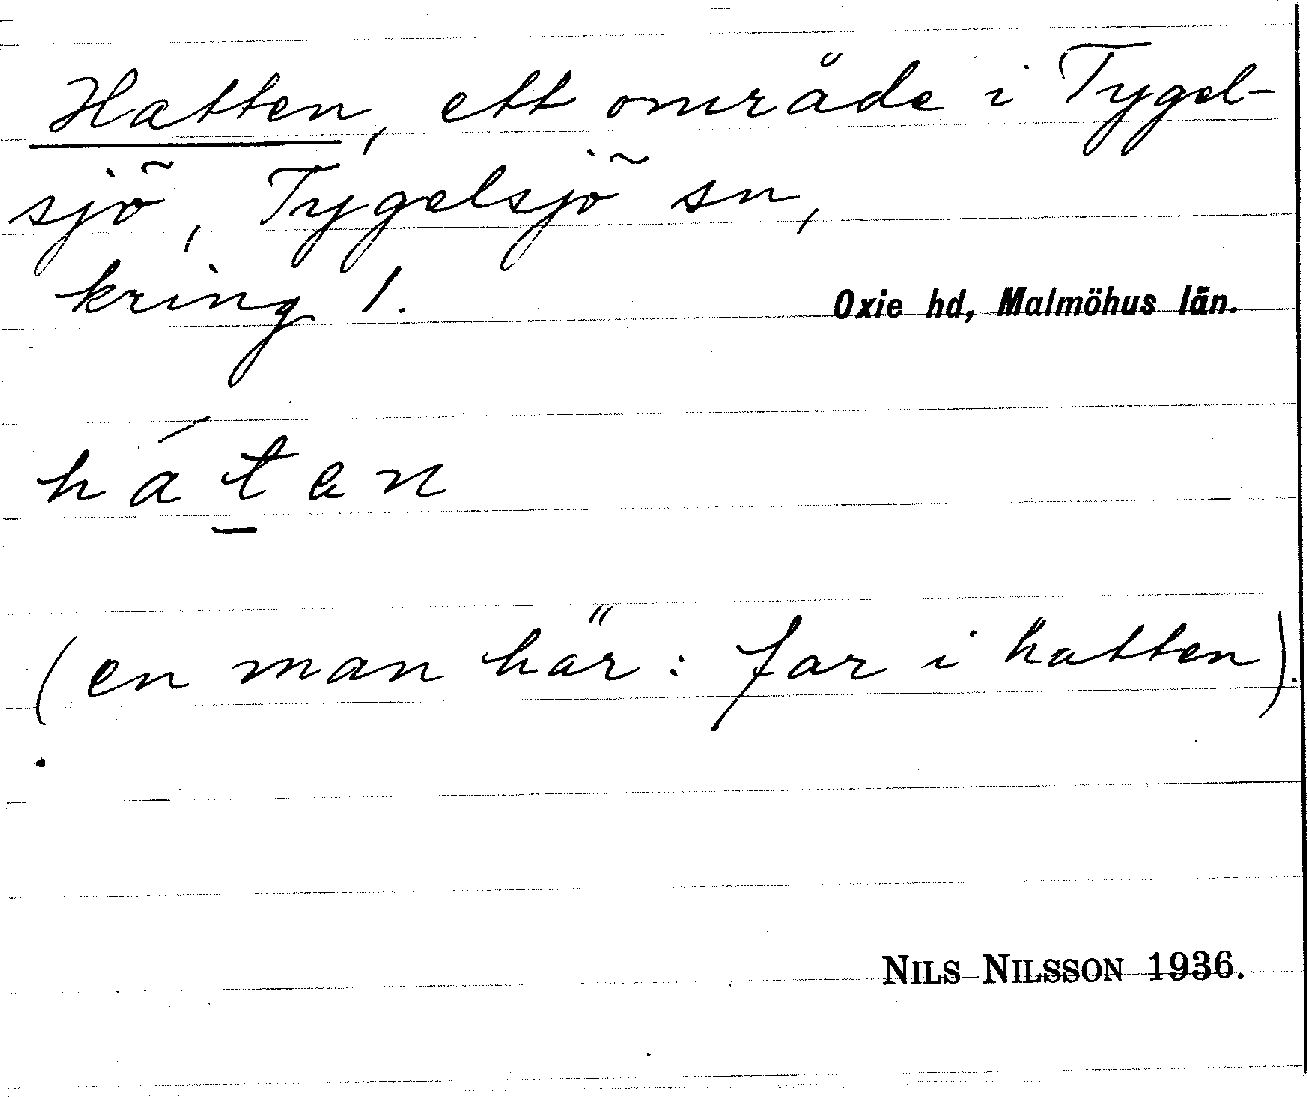 Hatten, ett område i Tygel-
sjö, Tygelsjö sn,
kring 1. Oxie hd, Malmöhus län.
háten
(en man här: far i hatten).
NILS NILSSON 1936.